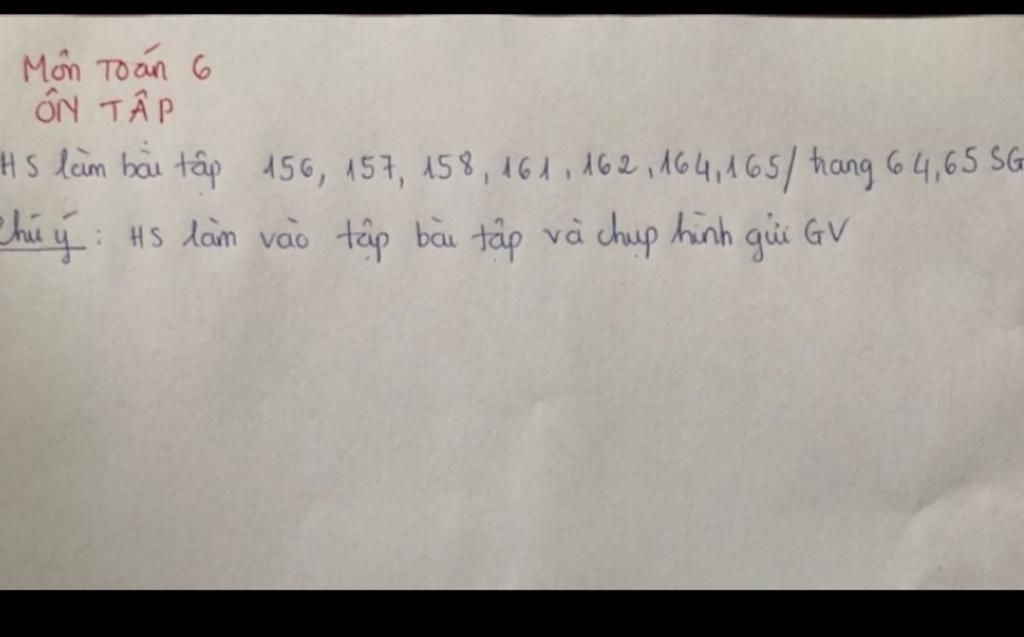 Môn Toán 6
ÔN TẬP
HS làm bài tập 156, 157, 158, 161, 162, 164, 165/ trang 64, 65 SG
Chú ý: HS làm vào tập bài tập và chụp hình gửi GV